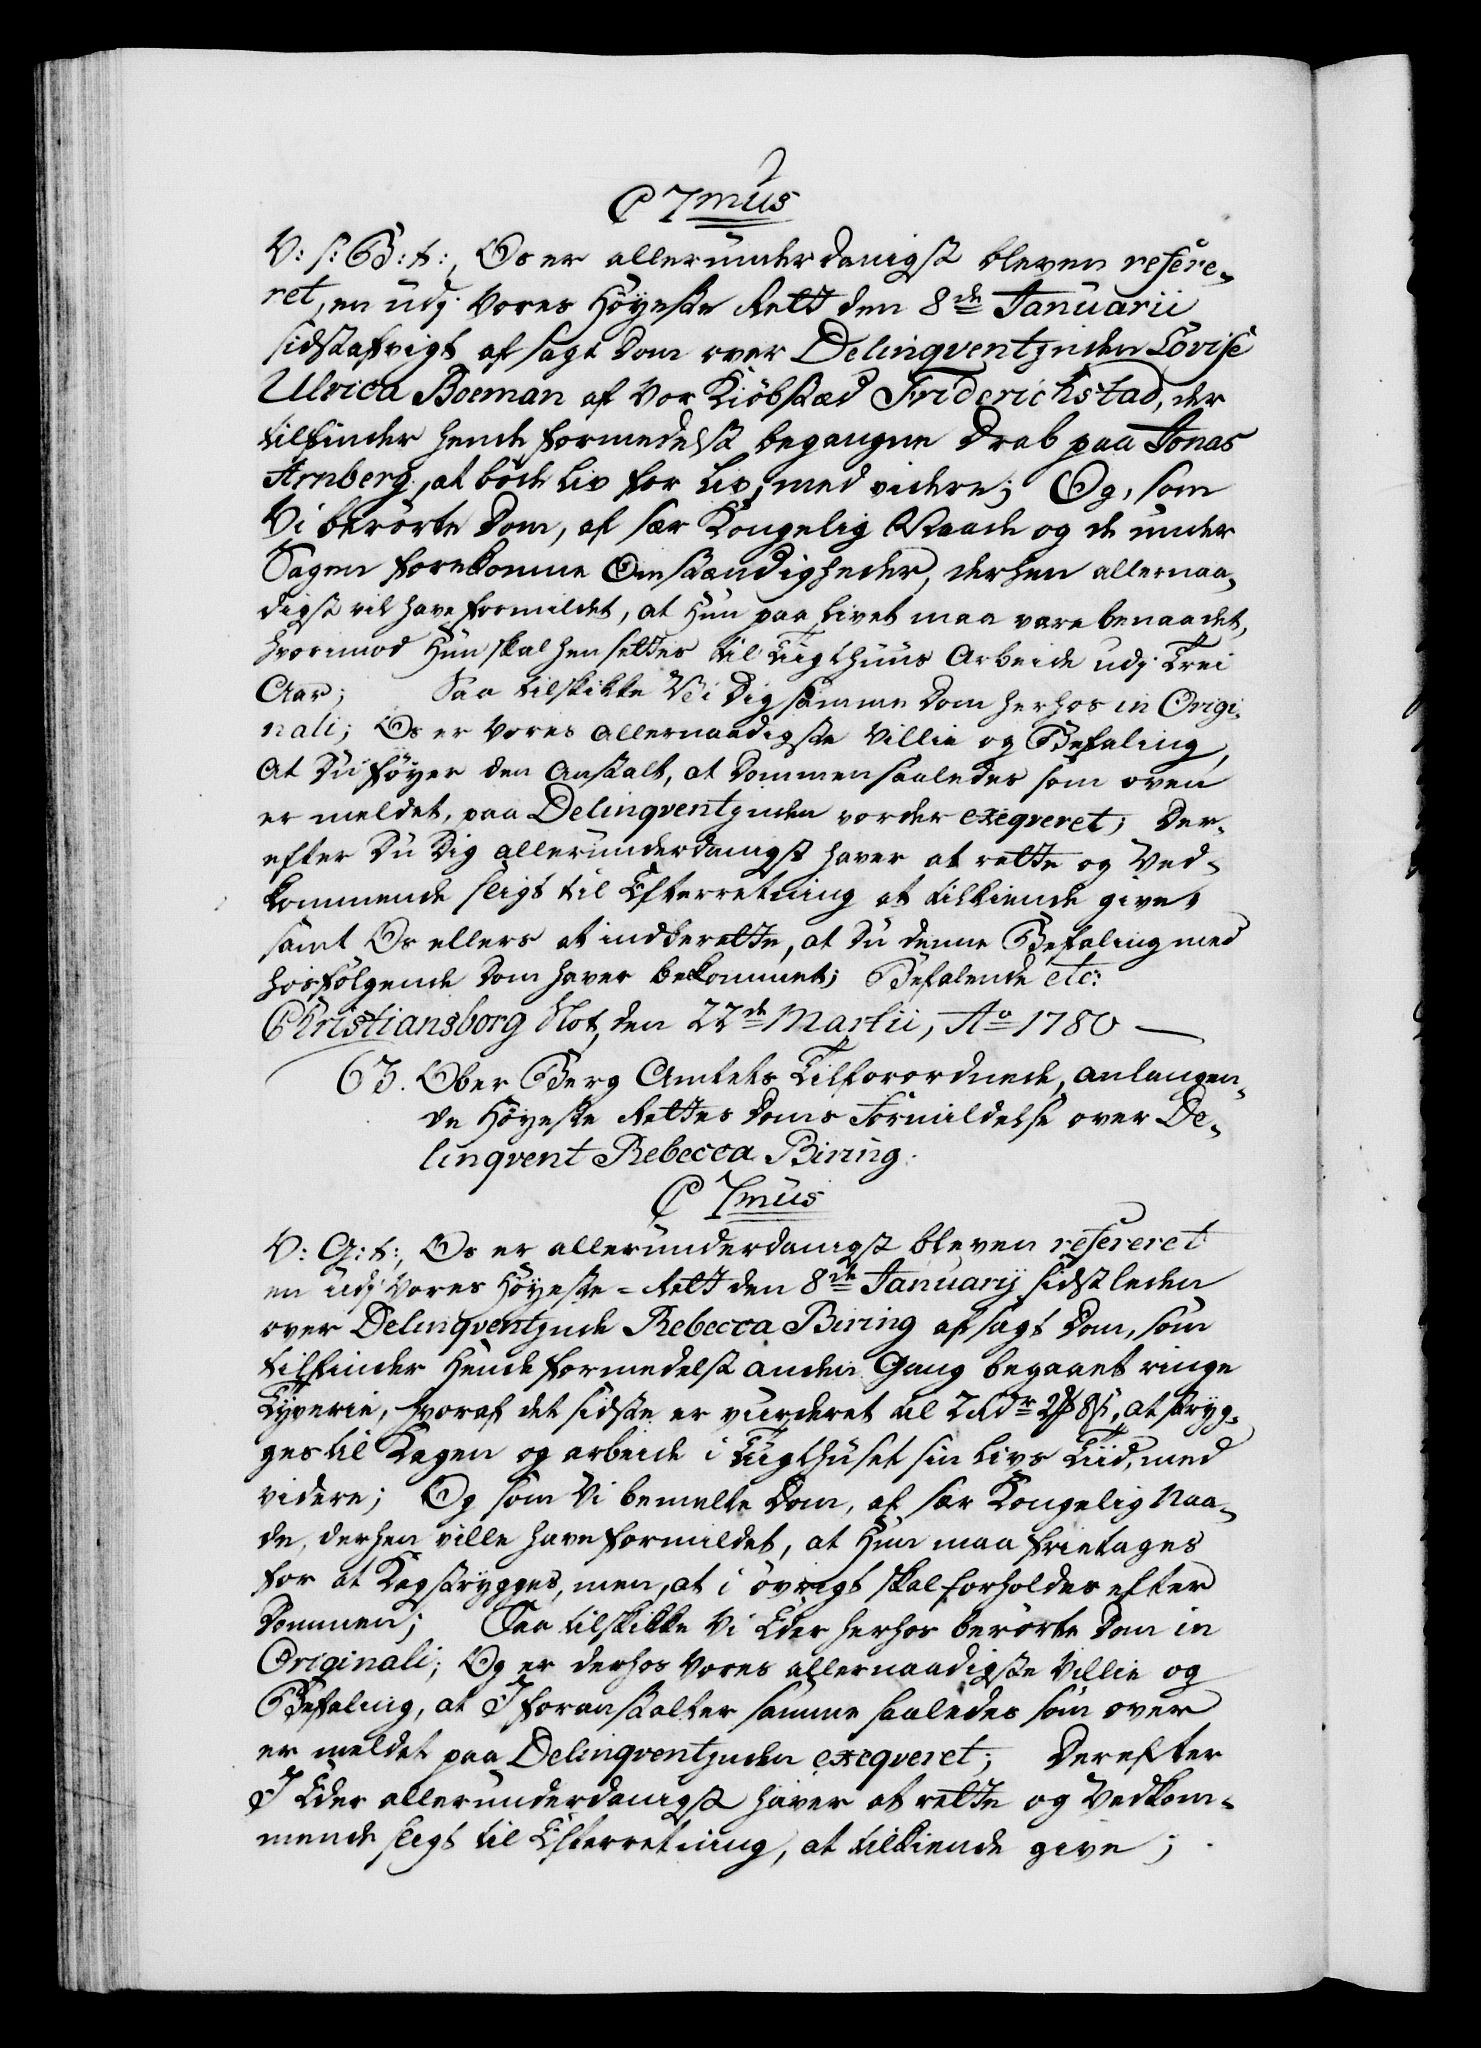 C 7mus
V: s: G: t:, Os er allerunderdanigst bleven refere-
ret, en udj Vores Höyeste Rett den 8de Januarii
sidstafvigt afsagt Dom over Delinqventjnden Lovise
Ulrica Boeman af Vor Kiöbstæd Friderichstad, der
tilfinder hende formedelst begangne Drab paa Jonas
Arnberg, at böde Liv for Liv, med videre; Og, som
Vi berörte Dom, af sær Kongelig Naade og de under
Sagen forekomne Omstændigheder, derhen allernaa-
digst vil have formildet, at Hun paa Livet maa være benaadet,
hvorimod Hun skal hensettes til Tugthuus Arbeide udj Trei
Aar; Saa tilskikke Vi Dig samme Dom herhos in Origi-
nali; Og er Vores allernaadigste Villie og Befaling,
At Du föyer den Anstalt, at Dommen saaledes som oven
er meldet, paa Delinqventjnden vorder exeqveret; Der-
efter Du Dig allerunderdanigst haver at rette og Ved-
kommende sligt til Efterretning at tilkiende give,
samt Os ellers at indberette, at Du denne Befaling med
hosfölgende Dom haver bekommet; Befalende etc:
Christiansborg Slot, den 22de Martii, Ao 1780 —
63. Ober Berg Amtets Tilforordnede, anlangen-
de Höyeste Rettes Doms Formildelse over De-
linqvent Rebecca Biring.
C 7mus
V: G: t:, Os er allerunderdanigst bleven refereret
en udj Vores Höyeste-Rett den 8de Januarij sidstleden
over Delinqventjnde Rebecca Biring afsagt Dom, som
tilfinder Hende formedelst anden Gang begaaet ringe
Tyverie, hvoraf det sidste er vurderet til 2 Rdr 2 ₰ 8 s, at stryg-
ges til Kagen og arbeide i Tugthuset sin Livs Tiid, med
videre; Og som Vi bemelte Dom, af sær Kongelig Naa-
de, derhen ville have formildet, at Hun maa frietages
for at Kagstrygges, men, at i övrigt skal forholdes efter
Dommen; Saa tilskikke Vi Eder herhos berörte Dom in
Originali; Og er derhos Vores allernaadigste Villie og
Befaling, at I foranstalter samme saaledes som oven
er meldet paa Delinqventjnden exeqveret; Derefter
I Eder allerunderdanigst haver at rette og Vedkom-
mende sligt til Efterretning, at tilkiende give;